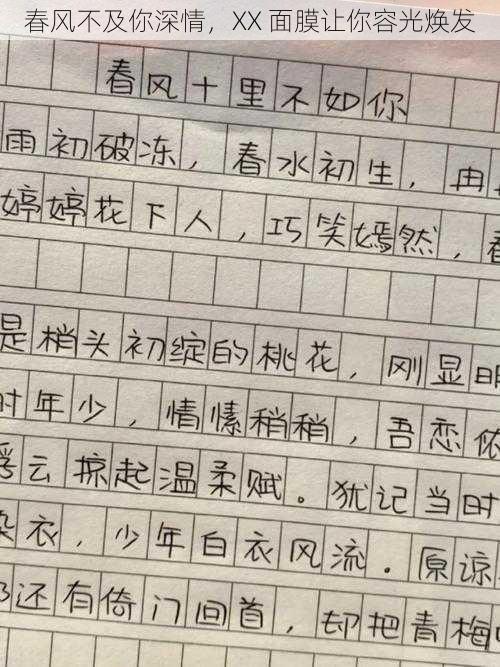 春风不及你深情，XX 面膜让你容光焕发
春风十里不如你
雨初破冻，春水初生，冉
婷婷花下人，巧笑嫣然，春
是梢头初绽的桃花，刚显明
时年少，情愫稍稍，吾恋依
浮云掠起温柔赋。犹记当时
染衣，少年白衣风流．原谅
还有倚门回首，却把青梅